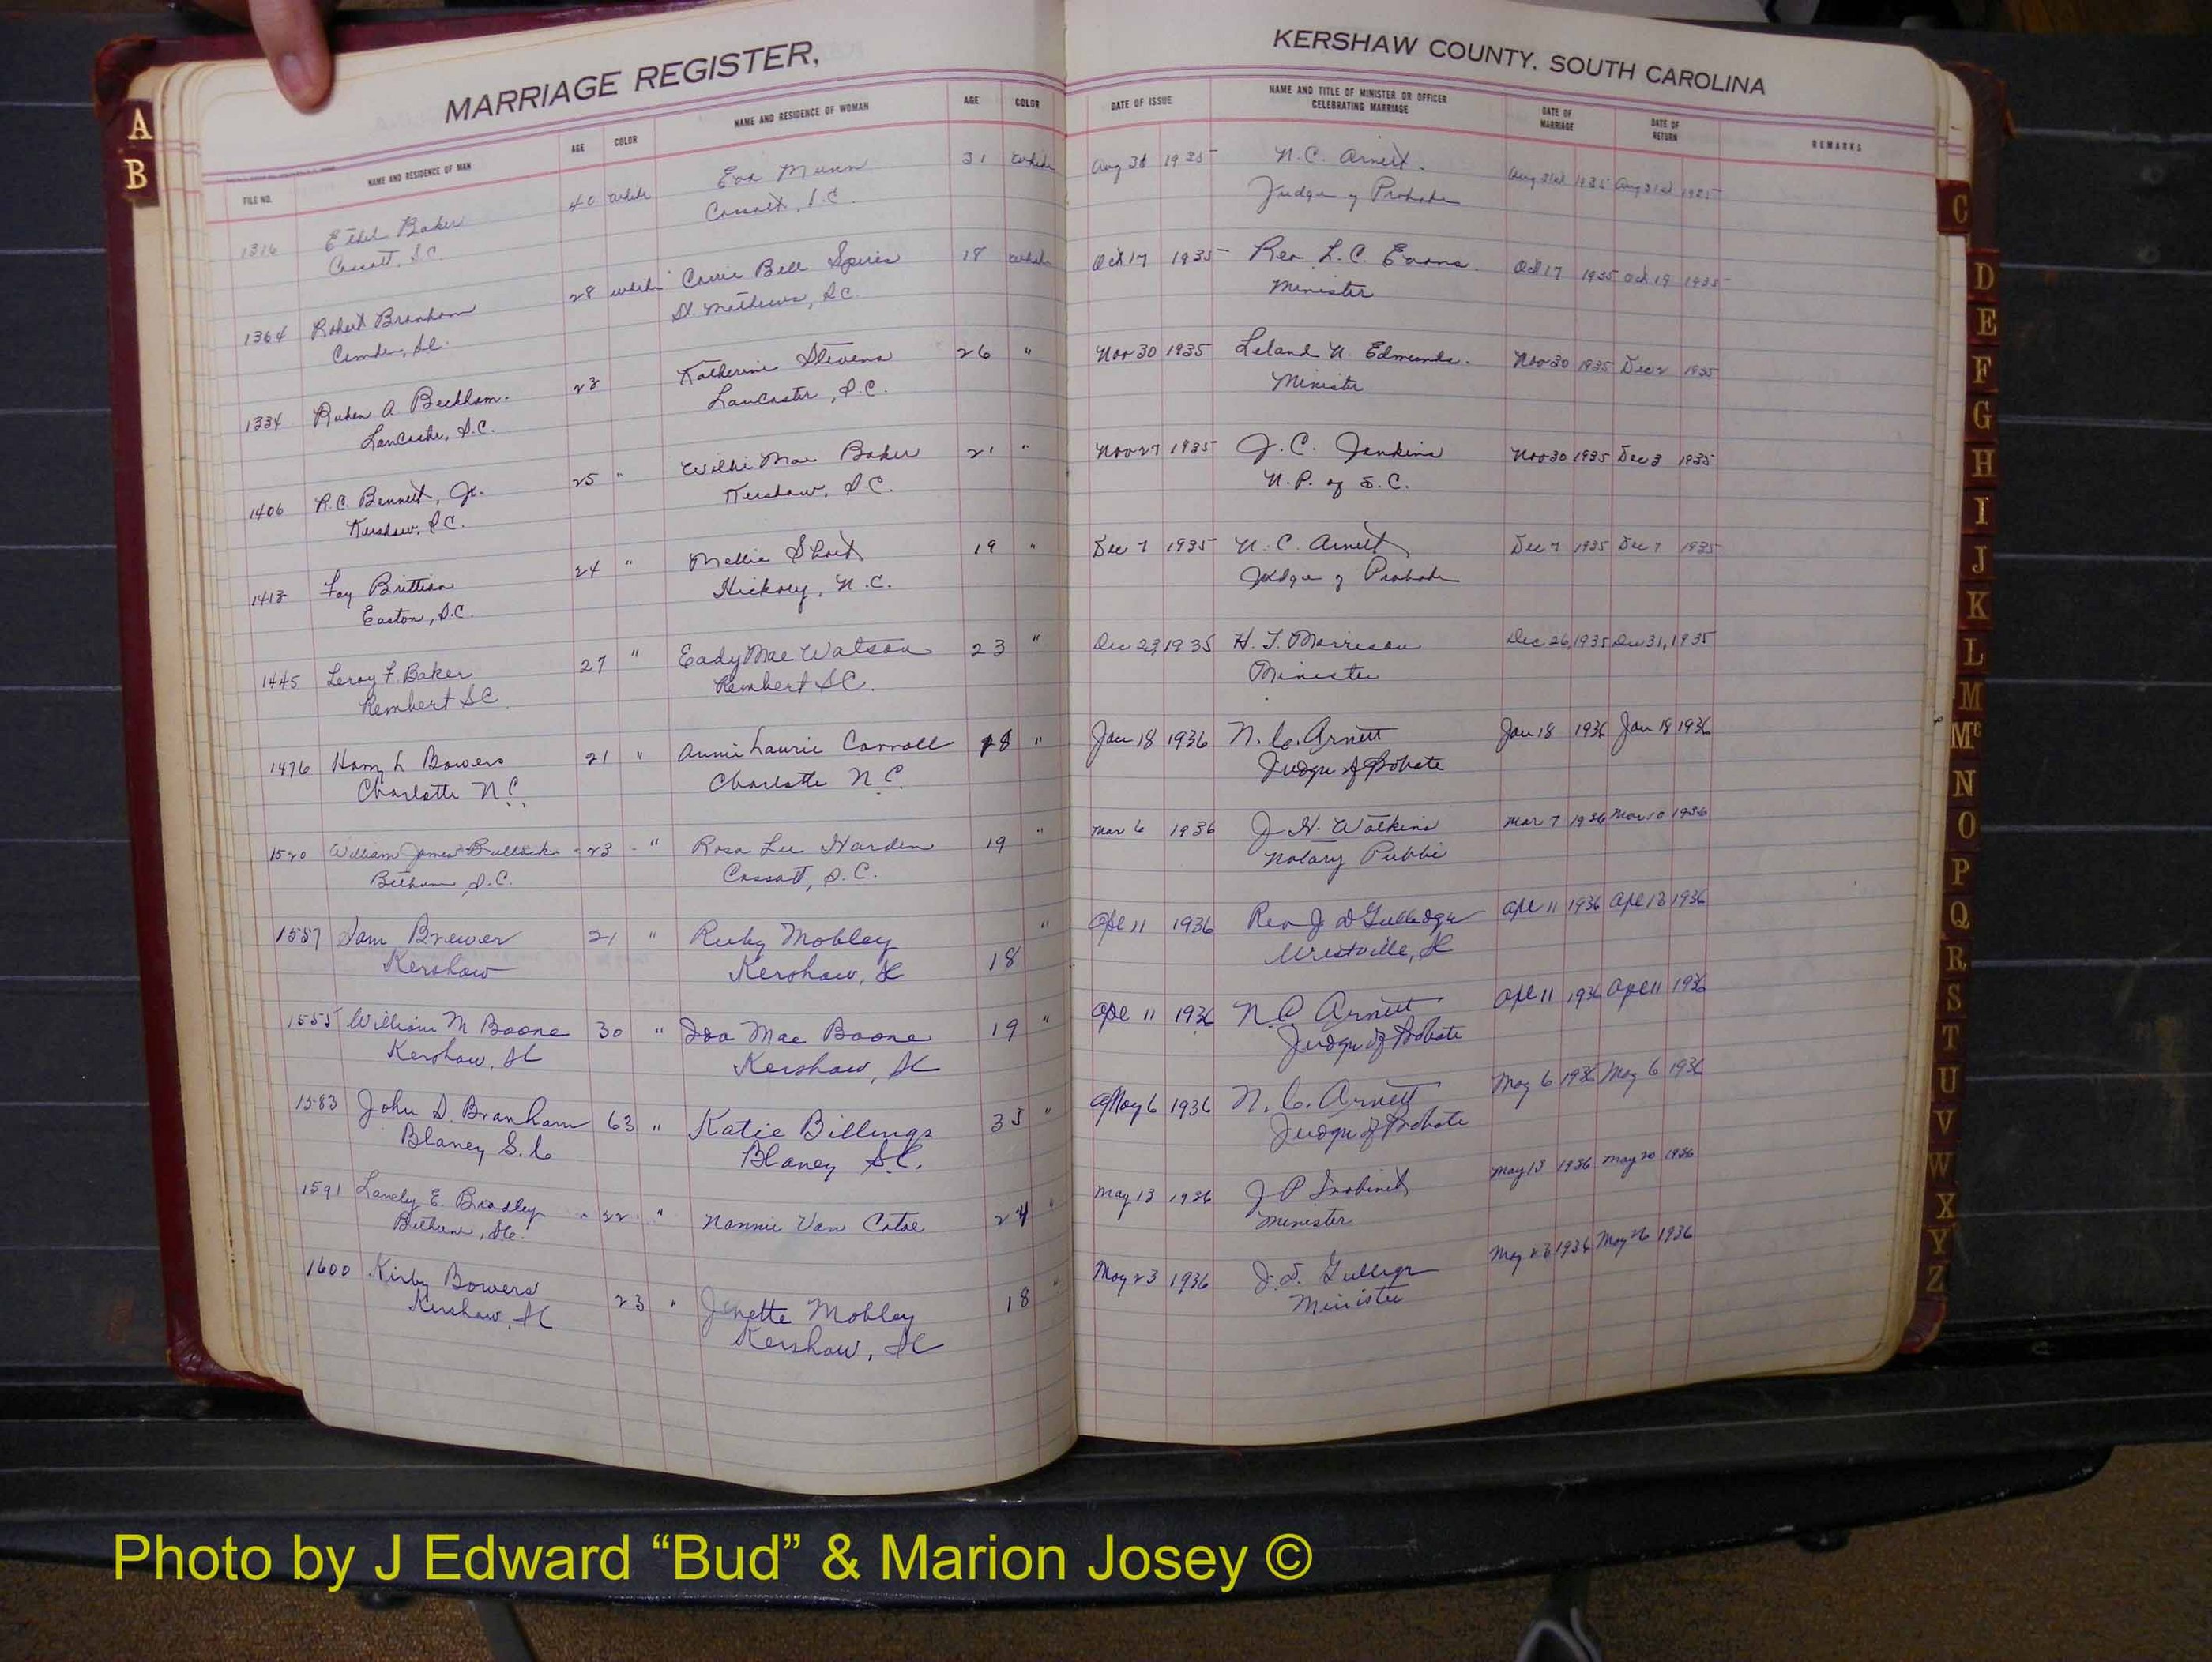 MARRIAGE REGISTER,
KERSHAW COUNTY, SOUTH CAROLINA
FILE NO. NAME AND RESIDENCE OF MAN AGE COLOR NAME AND RESIDENCE OF WOMAN AGE COLOR DATE OF ISSUE NAME AND TITLE OF MINISTER OR OFFICER CELEBRATING MARRIAGE DATE OF MARRIAGE DATE OF RETURN REMARKS
1316 Ethel Baker 40 white Eva Munn 31 white Aug 31 1935 N.C. Arnett. Aug 31st 1935 Aug 31st 1935
Cassatt, S.C. Cassatt, S.C. Judge of Probate
1364 Robert Branham 28 white Carrie Bell Spires 18 white Oct 17 1935 Rev L. C. Evans. Oct 17 1935 Oct 19 1935
Camden, S.C. St Mathews, S.C. Minister
1334 Ruben A Beckham. 23 Katherine Stevens 26 " Nov 30 1935 Leland N. Edmunds. Nov 30 1935 Dec 2 1935
Lancaster, S.C. Lancaster, S.C. Minister
1406 R.C. Bennett, Jr. 25 " Willie Mae Baker 21 " Nov 27 1935 J. C. Jenkins Nov 30 1935 Dec 3 1935
Kershaw, S.C. Kershaw, S.C. N.P. of S.C.
1413 Fay Brittian 24 " Mellie Short 19 " Dec 7 1935 N. C. Arnett Dec 7 1935 Dec 7 1935
Easton, S.C. Hickory, N.C. Judge of Probate
1445 Leroy F. Baker 27 " Eady Mae Watson 23 " Dec 23, 1935 H. T. Morrison Dec 26, 1935 Dec 31, 1935
Rembert SC Rembert SC. Minister
1476 Harry L Bowers 21 " Annie Laurie Carroll 18 " Jan 18 1936 N. C. Arnett Jan 18 1936 Jan 18 1936
Charlotte N.C. Charlotte N.C. Judge of Probate
1520 William James Bullock 23 " Rosa Lee Harden 19 " Mar 6 1936 J. H. Watkins Mar 7 1936 Mar 10 1936
Bethune, S.C. Cassatt, S.C. Notary Public
1557 Sam Brewer 21 " Ruby Mobley 18 " Apl 11 1936 Rev J D Gulledge Apl 11 1936 Apl 13 1936
Kershaw Kershaw, SC Westville, SC
1555 William M Boone 30 " Ida Mae Boone 19 " Apl 11 1936 N. C. Arnett Apl 11 1936 Apl 11 1936
Kershaw, SC Kershaw, SC Judge of Probate
1583 John D. Branham 63 " Katie Billings 35 " May 6 1936 N. C. Arnett May 6 1936 May 6 1936
Blaney S.C Blaney S.C. Judge of Probate
1591 E. Bradley 22 " Nannie Van Catoe 24 " May 13 1936 J P May 13 1936 May 20 1936
Bethune, SC. Minister
1600 Kirby Bowers 23 " Jenette Mobley 18 " May 23 1936 May 23 1936 May 26 1936
Kershaw, SC Kershaw, SC Minister
A
B
C
D
E
F
G
H
I
J
K
L
M
Mc
N
O
P
Q
R
S
T
U
V
W
X
Y
Z
Photo by J Edward “Bud” & Marion Josey ©